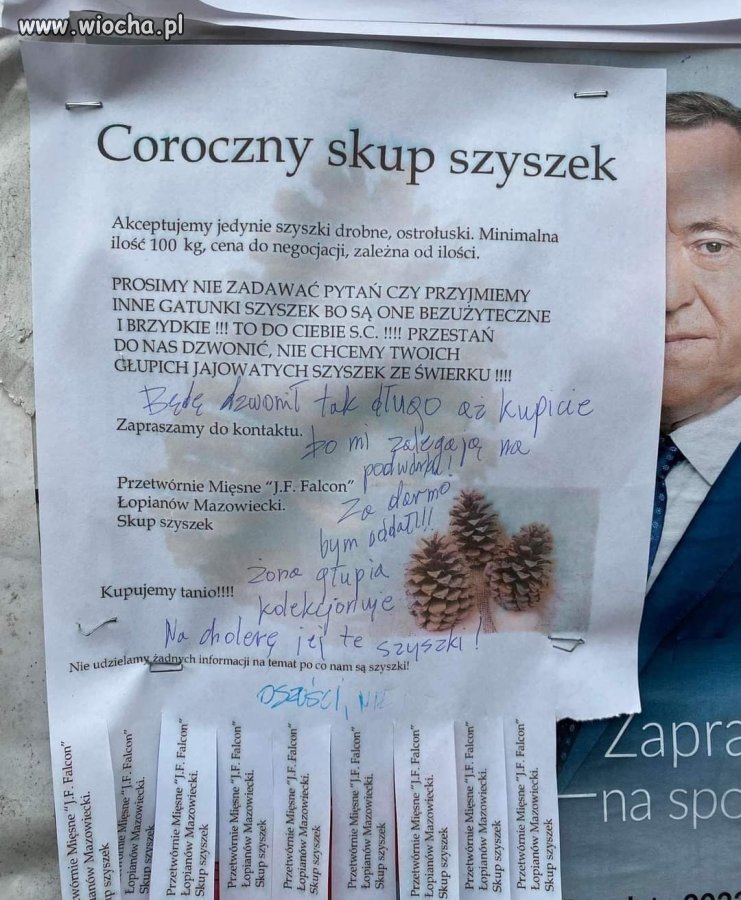 www.wiocha.pl
Coroczny skup szyszek
Akceptujemy jedynie szyszki drobne, ostrołuski. Minimalna
ilość 100 kg, cena do negocjacji, zależna od ilości.
PROSIMY NIE ZADAWAĆ PYTAŃ CZY PRZYJMIEMY
INNE GATUNKI SZYSZEK BO SĄ ONE BEZUŻYTECZNE
I BRZYDKIE !!! TO DO CIEBIE S.C. !!!! PRZESTAŃ
DO NAS DZWONIĆ, NIE CHCEMY TWOICH
GŁUPICH JAJOWATYCH SZYSZEK ZE ŚWIERKU !!!!
Będę dzwonił tak długo aż kupicie
Zapraszamy do kontaktu.
bo mi zalegają na
podwórku!
Przetwórnie Mięsne "J.F. Falcon"
Łopianów Mazowiecki.
Skup szyszek
Za darmo
bym oddał!!!
żona głupia
Kupujemy tanio!!!!
kolekcjonuje
Na cholerę jej te szyszki!
Nie udzielamy żadnych informacji na temat po co nam są szyszki!
Zapra
na spo
Przetwórnie Mięsne "J.F. Falcon"
Łopianów Mazowiecki.
Skup szyszek
Przetwórnie Mięsne "J.F. Falcon"
Łopianów Mazowiecki.
Skup szyszek
Przetwórnie Mięsne "J.F. Falcon"
Łopianów Mazowiecki.
Skup szyszek
Przetwórnie Mięsne "J.F. Falcon"
Łopianów Mazowiecki.
Skup szyszek
Przetwórnie Mięsne "J.F. Falcon"
Łopianów Mazowiecki.
Skup szyszek
Przetwórnie Mięsne "J.F. Falcon"
Łopianów Mazowiecki.
Skup szyszek
Przetwórnie Mięsne "J.F. Falcon"
Łopianów Mazowiecki.
Skup szyszek
Przetwórnie Mięsne "J.F. Falcon"
Łopianów Mazowiecki.
Skup szyszek
Przetwórnie Mięsne "J.F. Falcon"
Łopianów Mazowiecki.
Skup szyszek